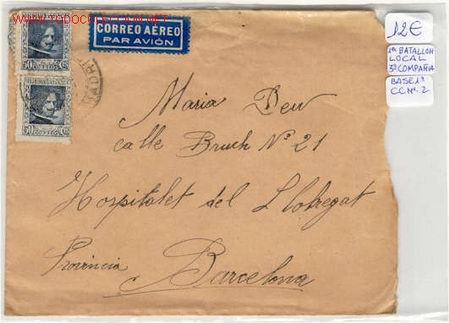 www.todocoleccion.net
CORREO AÉREO
PAR AVIÓN
12€
1º BATALLON
LOCAL
3ª COMPAÑIA
BASE 1ª
CC Nº 2
Maria Deu
calle Bruch Nº 21
Hospitalet del Llobregat
Provincia Barcelona
50 Cs
50 Cs